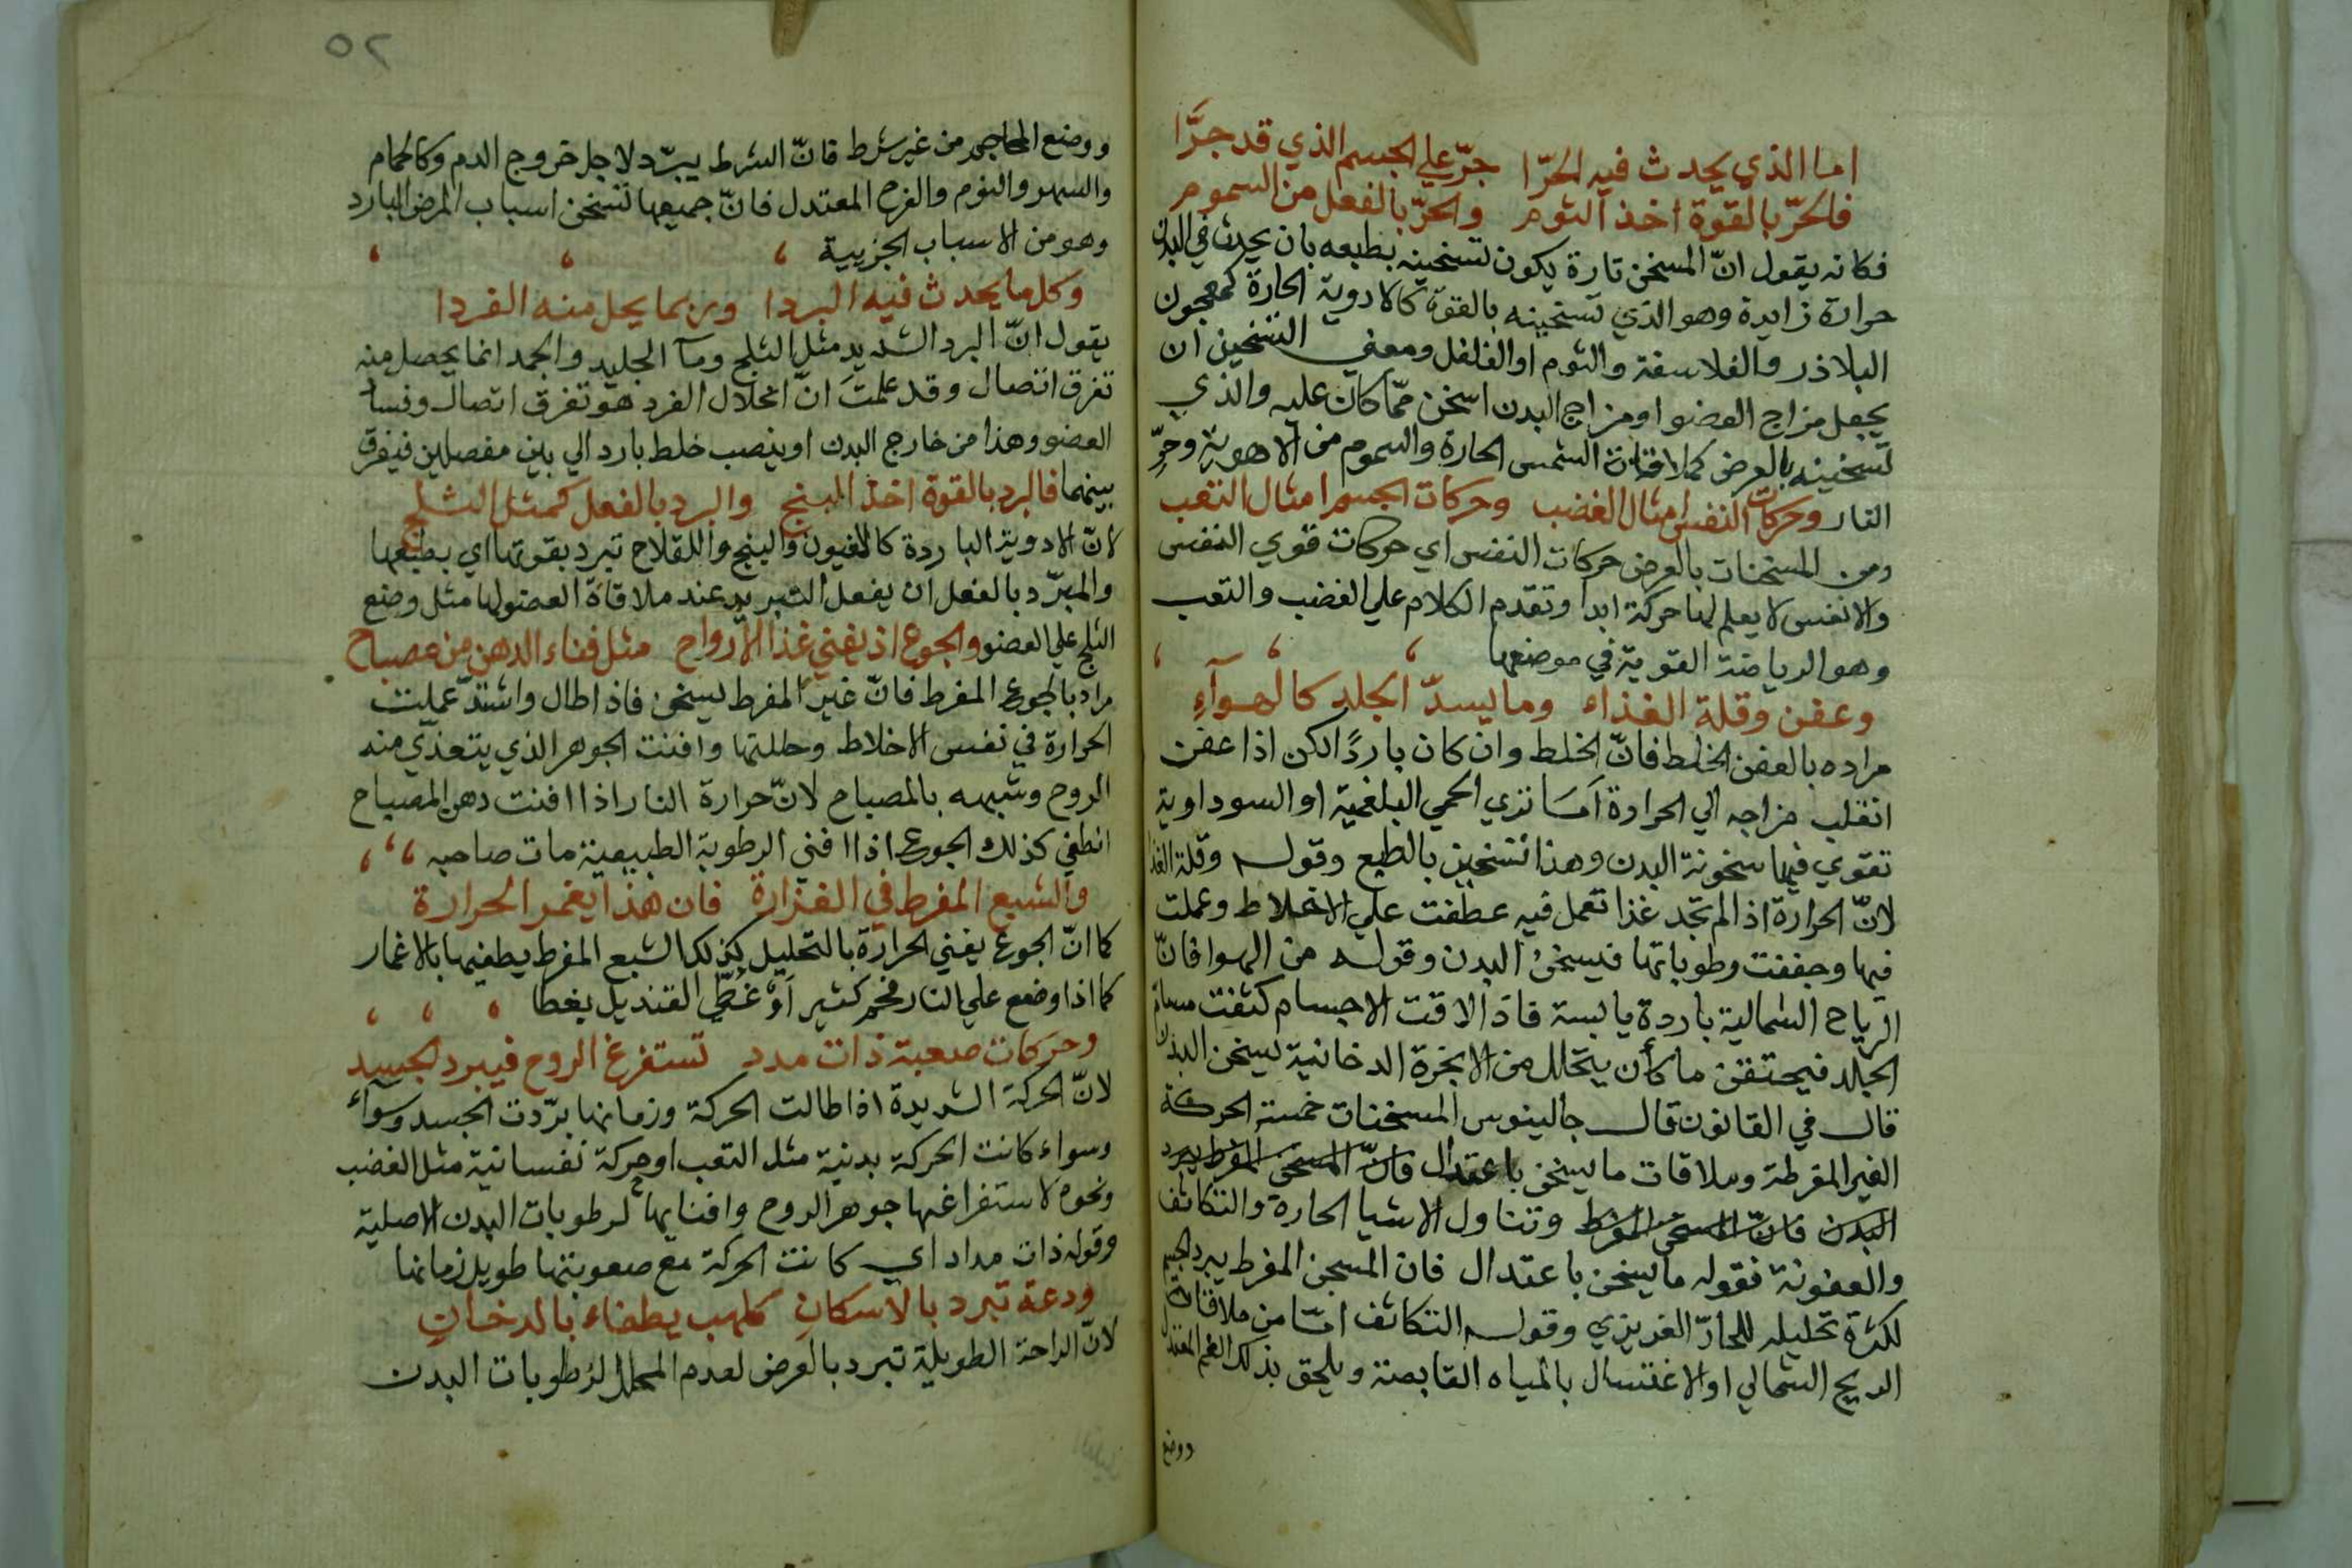 اما الذي يحدث فيه الحرّا جرّ علي الجسم الذي قد جرَّا
فالحرّ بالقوة اخذ الثوم والحرّ بالفعل من السموم
فكانه يقول انّ المسخن تارة يكون تسخينه بطبعه بان يحدث في البدن
حرارة زايدة وهو الذي تسخينه بالقوة كالادوية الحارة كمعجون
البلاذر والفلاسفة والثوم او الفلفل ومعني التسخين ان
يجعل مزاج العضو او مزاج البدن اسخن ممّا كان عليه والذي
تسخينه بالعرض كملاقات الشمس الحارة والسموم من الاهوية وحرِّ
النار وحركات النفس امثال الغضب وحركات الجسم امثال التعب
ومن المسخنات بالعرض حركات النفس اي حركات قوي النفس
والانفس لا يعلم لها حركة ابدا وتقدم الكلام علي الغضب والتعب
وهو الرياضة القوية في موضعها
وعفن وقلة الغذاء وما يسدّ الجلد كالهوآء
مراده بالعفن الخلط فانّ الخلط وان كان باردًا لكن اذا عفن
انقلب مزاجه الي الحرارة اَمَا تري الحمي البلغمية او السوداوية
تقوي فيها سخونة البدن وهذا تسخين بالطبع وقوله وقلة الغذا
لانّ الحرارة اذا لم تجد غذا تعمل فيه عطفت علي الاخلاط وعملت
فيها وجففت رطوباتها فيسخن البدن وقوله من الهوا فانّ
الرياح الشمالية باردة يابسة فاذا لاقت الاجسام كثفت مسام
الجلد فيحتقن ما كان يتحلل من الابخرة الدخانية يسخن البدن
قال في القانون قال جالينوس المسخنات خمسة الحركة
الغير المفرطة وملاقات ما يسخن باعتدال فانّ المسخن المفرط يبرد
البدن فانّ المسخن المفرط وتناول الاشيا الحارة والتكاثف
والعفونة فقوله ما يسخن باعتدال فان المسخن المفرط يبرد الجسم
لكثرة تحليله للحارّ الغريزي وقوله التكاثف امّا من ملاقات
الريح الشمالي او الاغتسال بالمياه القابضة ويلحق بذلك الغم المعتدل
ووضع
٥٢
ووضع المحاجم من غير شرط فانّ الشرط يبرّد لاجل خروج الدم وكالحمام
والسهر والنوم والفرح المعتدل فانّ جميعها تسخن اسباب المرض البارد
وهو من الاسباب الجزيية
وكل ما يحدث فيه البردا وربما يحل منه الفردا
يقول انّ البرد الشديد مثل الثلج ومآ الجليد والجمد انما يحصل منه
تفرق اتصال وقد علمتَ انّ انحلال الفرد هو تفرق اتصال وفسا
العضو وهذا من خارج البدن او ينصب خلط بارد الي بين مفصلين فيفرق
بينهما فالبرد بالقوة اخذ البنج والبرد بالفعل كمثل الثلج
لانّ الادوية الباردة كالافيون والبنج واللقلاح تبرد بقوتها اي بطبعها
والمبرّد بالفعل ان يفعل التبريد عند ملاقاة العضو لها مثل وضع
الثلج علي العضو والجوع اذ يفني غذا الارواح مثل فناء الدهن من مصباح
مراد بالجوع المفرط فانّ غير المفرط يسخن فاذا طال واشتدّ عملت
الحرارة في نفس الاخلاط وحللتها وافنت الجوهر الذي يتغذّي منه
الروح وشبهه بالمصباح لانّ حرارة النار اذا افنت دهن المصباح
انطفي كذلك الجوع اذا افني الرطوبة الطبيعية مات صاحبه
والشبع المفرط في الغزارة فان هذا يغمر الحرارة
كما انّ الجوع يفني الحرارة بالتحليل كذلك الشبع المفرط يطفيها بالاغمار
كما اذا وضع علي النار فحم كثير اَوْ غُطّي القنديل بغطا
وحركات صعبة ذات مدد تستفرغ الروح فيبرد الجسد
لانّ الحركة الشديدة اذا طالت الحركة وزمانها برّدت الجسد وسوآء
وسواء كانت الحركة بدنية مثل التعب او حركة نفسانية مثل الغضب
ونحوه لاستفراغها جوهر الروح وافنايها لرطوبات البدن الاصلية
وقوله ذات مداد اي كانت الحركة مع صعوبتها طويل زمانها
ودعة تبرد بالاسكان كلهب يطفاء بالدخان
لانّ الراحة الطويلة تبرد بالعرض لعدم المحلل لرطوبات البدن